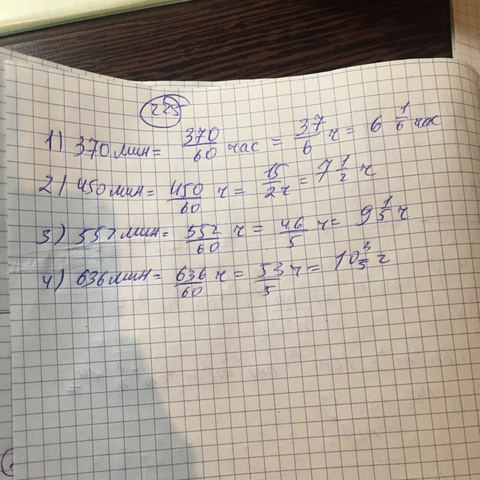 225
1) 370 мин = 370/60 час = 37/6 ч = 6 1/6 час
2) 450 мин = 450/60 ч = 15/2 ч = 7 1/2 ч
3) 552 мин = 552/60 ч = 46/5 ч = 9 1/5 ч
4) 636 мин = 636/60 ч = 53/5 ч = 10 3/5 ч